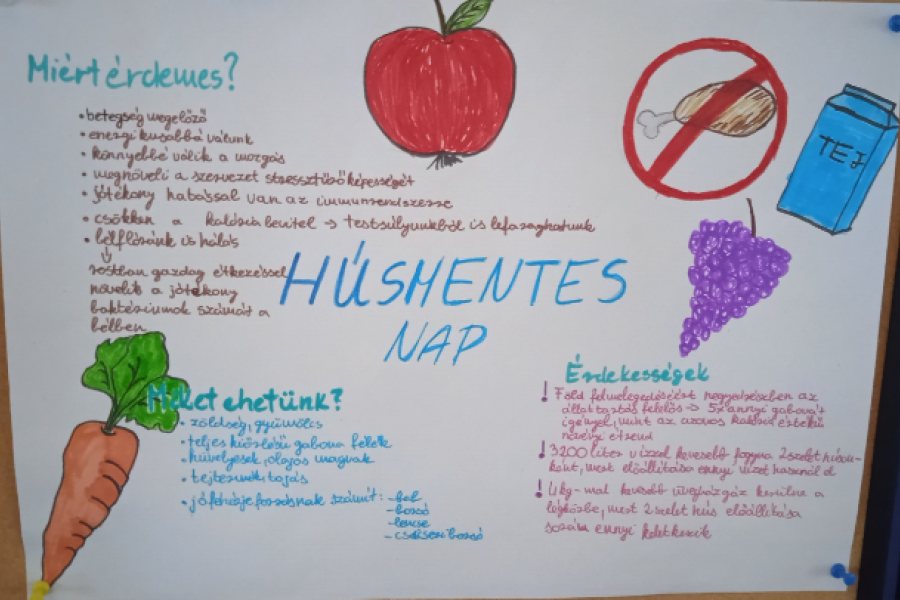 Miért érdemes?
• betegség megelőző
• energikusabbá válunk
• könnyebbé válik a mozgás
• megnöveli a szervezet stressztűrő képességét
• jótékony hatással van az immunrendszerre
• csökken a kalóriabevitel → testsúlyunkból is lefaraghatunk
• bélflóránk is hálás
↓
rostban gazdag étkezéssel
növeli a jótékony
baktériumok számát a
bélben
TEJ
HÚSMENTES
NAP
Miket ehetünk?
• zöldség, gyümölcs
• teljes kiőrlésű gabona félék
• hüvelyesek, olajos magvak
• tejtermék, tojás
• jó fehérje forrásnak számít: -bab
-borsó
-lencse
-csicseriborsó
Érdekességek
! Föld felmelegedéséért negyedrészben az
állattartás felelős → 5x annyi gabonát
igényel, mint az azonos kalória értékű
növényi étrend
! 3200 liter vízzel kevesebb fogyna 2 szelet húson-
ként, mert előállítása ennyi vizet használ el
! 4 kg-mal kevesebb üvegházgáz kerülne a
légkörbe, mert 2 szelet hús előállítása
során ennyi keletkezik